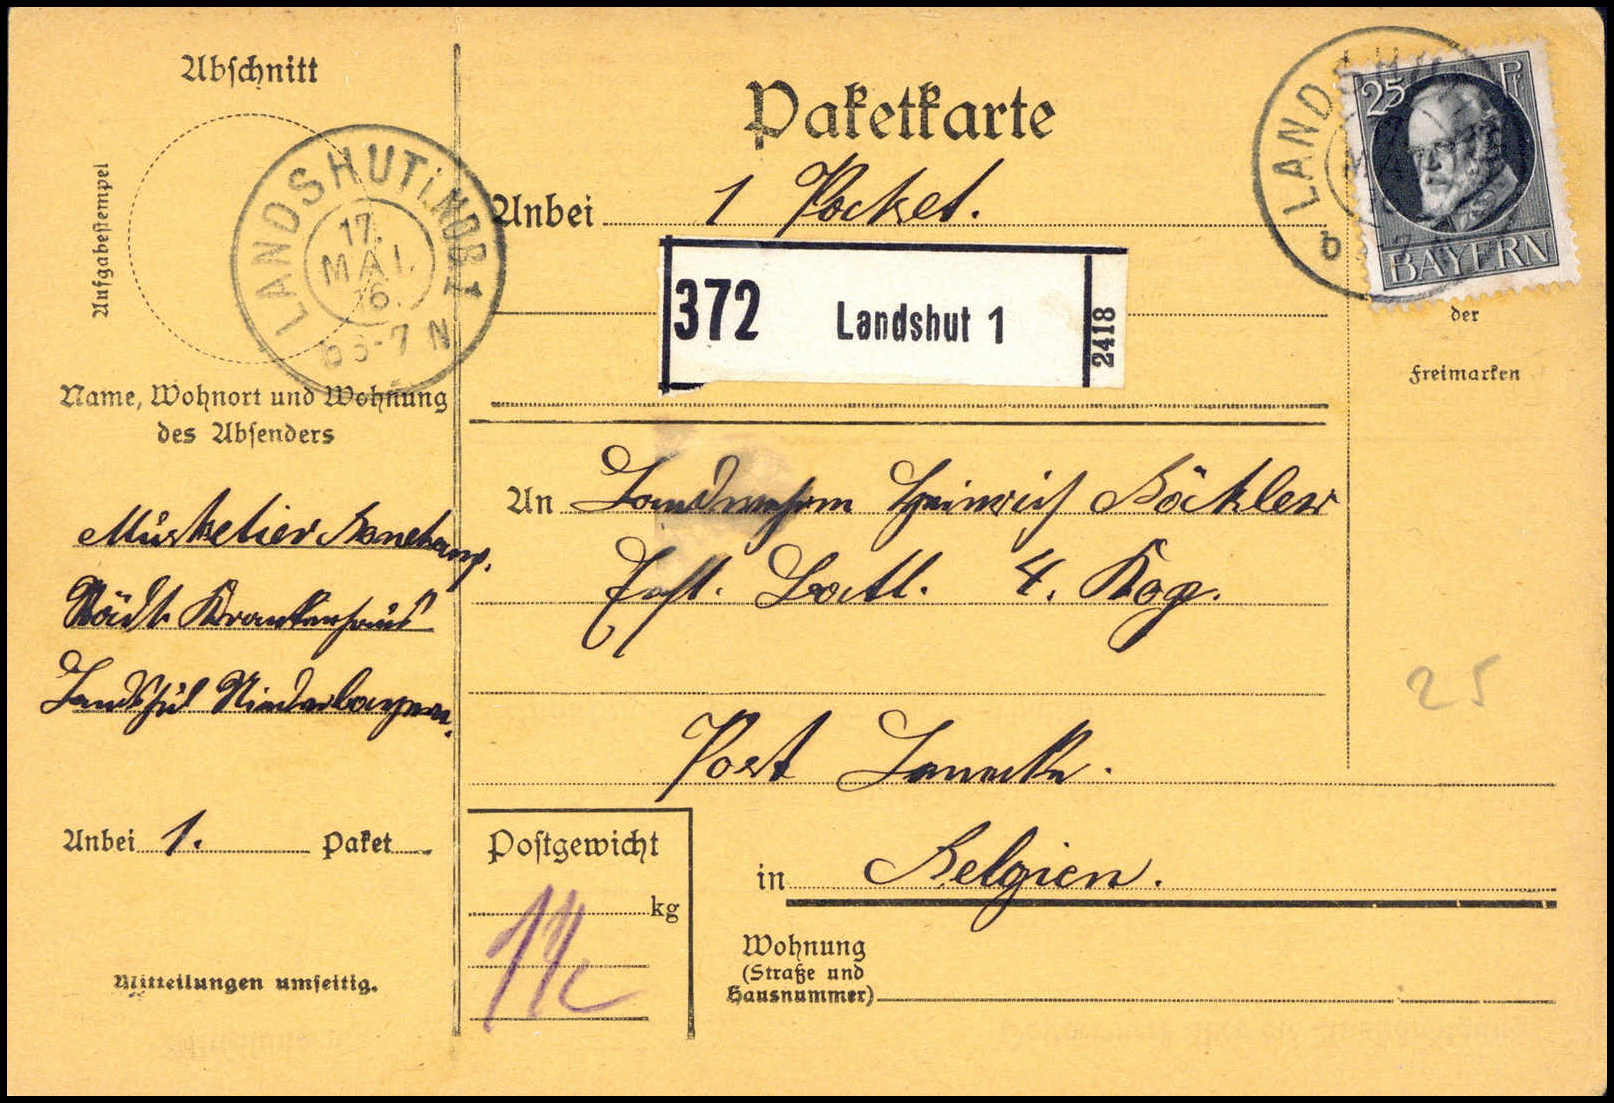 Abschnitt
Aufgabestempel
LANDSHUT i. NDB 1
17.
MAI.
16.
b 6-7 N
Name, Wohnort und Wohnung
des Absenders
Musketier
Städt. Krankenhaus
Landshut Niederbayern.
Anbei 1. Paket
Mitteilungen umseitig.
Paketkarte
Anbei 1 Packet.
372 Landshut 1 2418
An Landwehrm Heinrich Böckler
Batl. 4. Kog.
Post
in Belgien.
Postgewicht
kg
Wohnung
(Straße und
Hausnummer)
LANDSHU
b
25 Pf
BAYERN
der
Freimarken
25